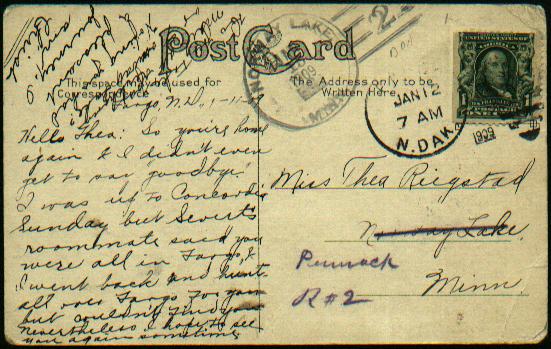 Post Card
This space may be used for
Correspondence
The Address only to be
Written Here
Fargo, N.D., 1-11-09
Hello Thea: So you're home
again & I didn't even
get to say goodbye.
I was up to Concordia
Sunday but Severts
roommate said you
were all in Fargo, &
I went back and hunt
all over Fargo for you
but couldn't find you
Nevertheless I hope to see
you again sometime
NORWAY LAKE
MINN.
1909
2
JAN 12
7 AM
N. DAK.
1909
1
Miss Thea Riegstad
Norway Lake,
Pennock
Minn.
R#2